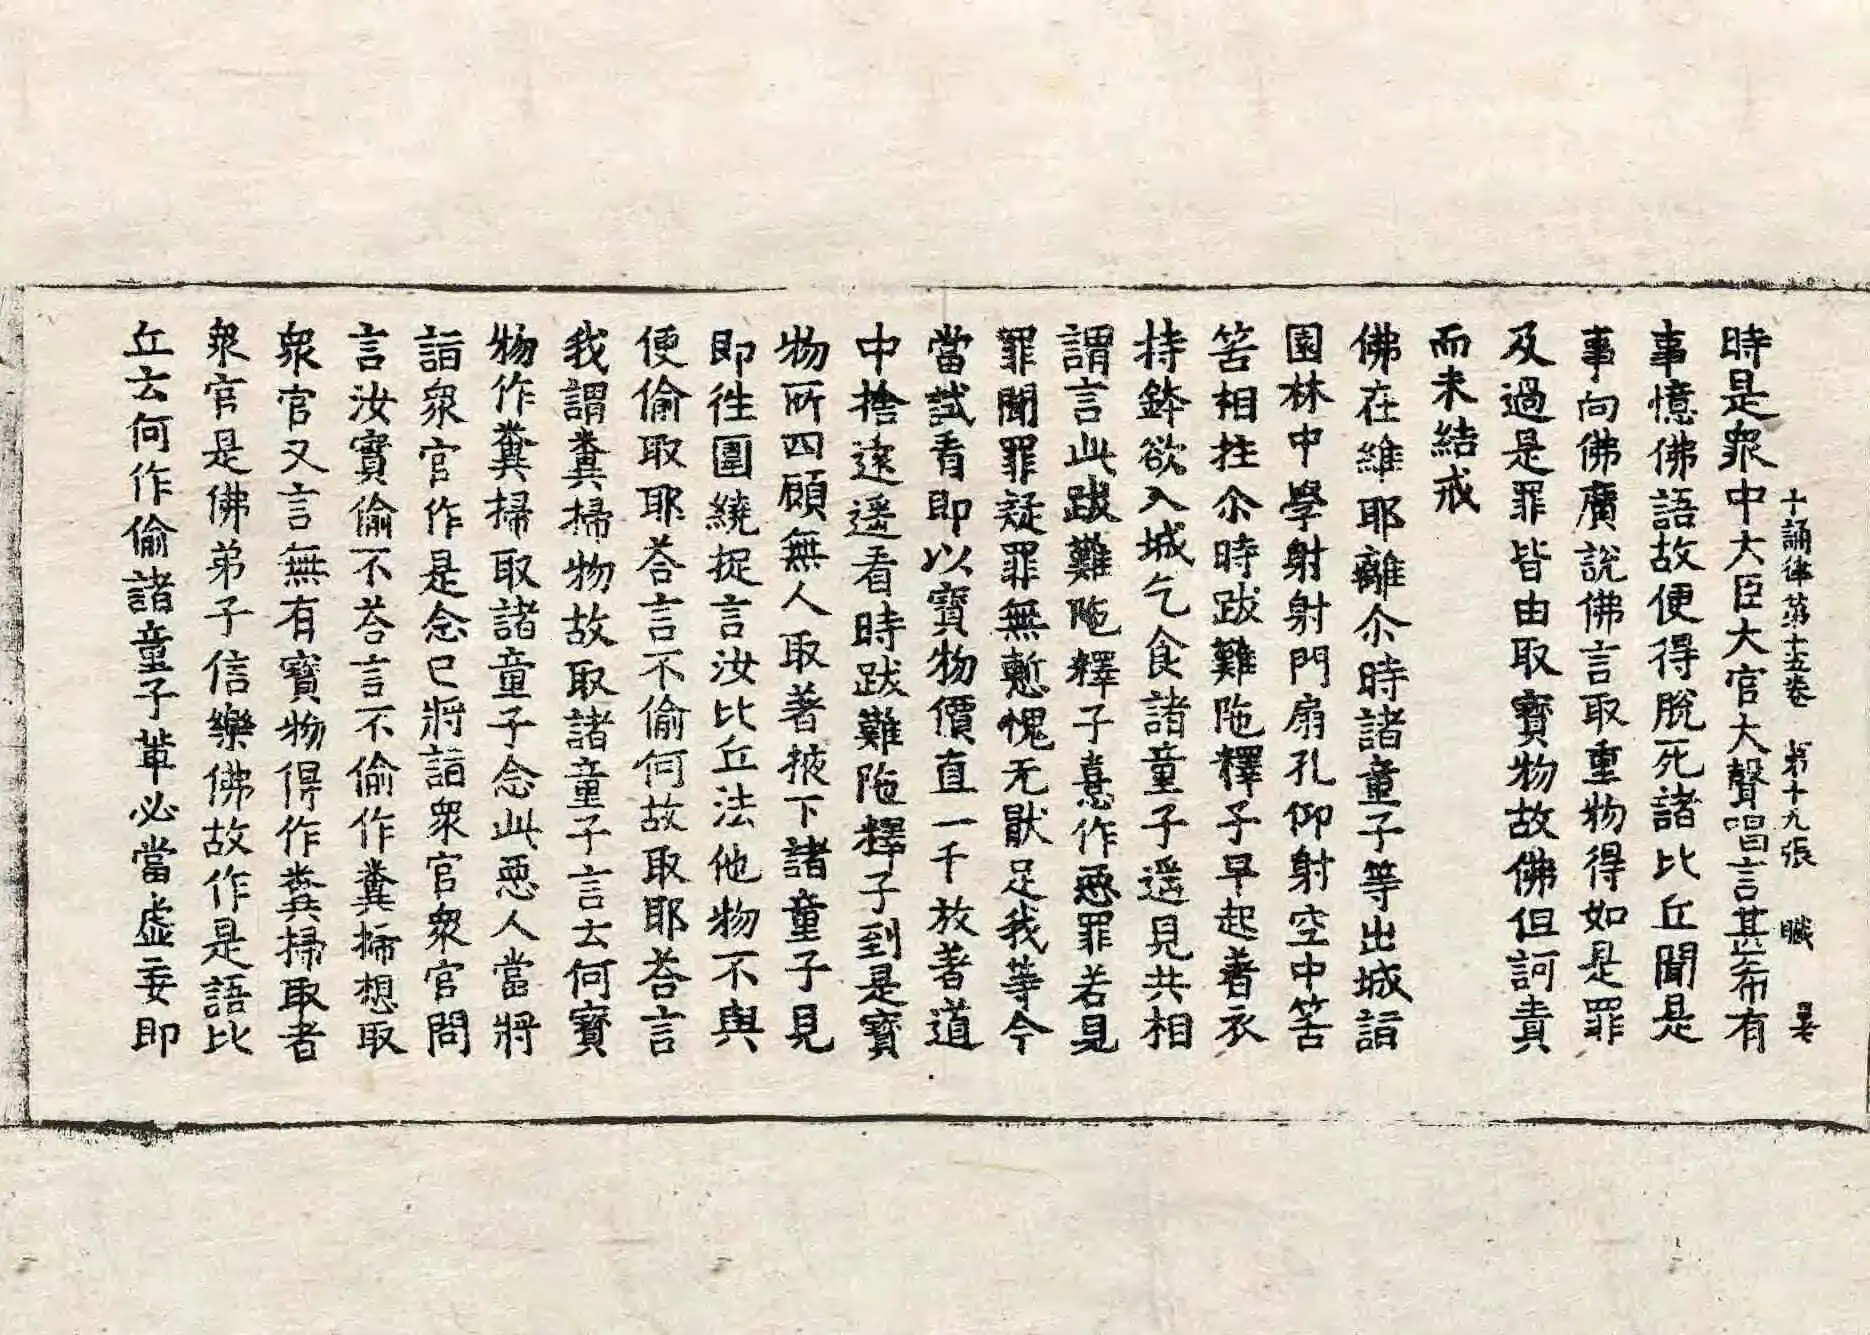 十誦律第十五卷 第十九張 職
時是衆中大臣大官大聲唱言其叅布有
事憶佛語故便得脫死諸比丘聞是
事向佛廣說佛言取重物得如是罪
及過是罪皆由取寶物故佛但訶責
而未結戒
佛在維耶離尒時諸童子等出城詣
園林中學射射門扇孔仰射空中筈
筈相拄尒時跋難陁釋子早起著衣
持鉢欲入城乞食諸童子遥見共相
謂言此跋難陁釋子憙作惡罪若見
罪聞罪疑罪無慙愧无猒足我等今
當試看即以寶物價直一千放著道
中捨遠遥看時跋難陁釋子到是寶
物所四顧無人取著掖下諸童子見
即徃圍繞捉言汝比丘法他物不與
便偷取耶荅言不偷何故取耶荅言
我謂糞掃物故取諸童子言云何寶
物作糞掃取諸童子念此惡人當將
詣衆官作是念已將詣衆官衆官問
言汝實偷不荅言不偷作糞掃想取
衆官又言無有寶物得作糞掃取者
衆官是佛弟子信樂佛故作是語比
丘云何作偷諸童子軰必當虛妄即